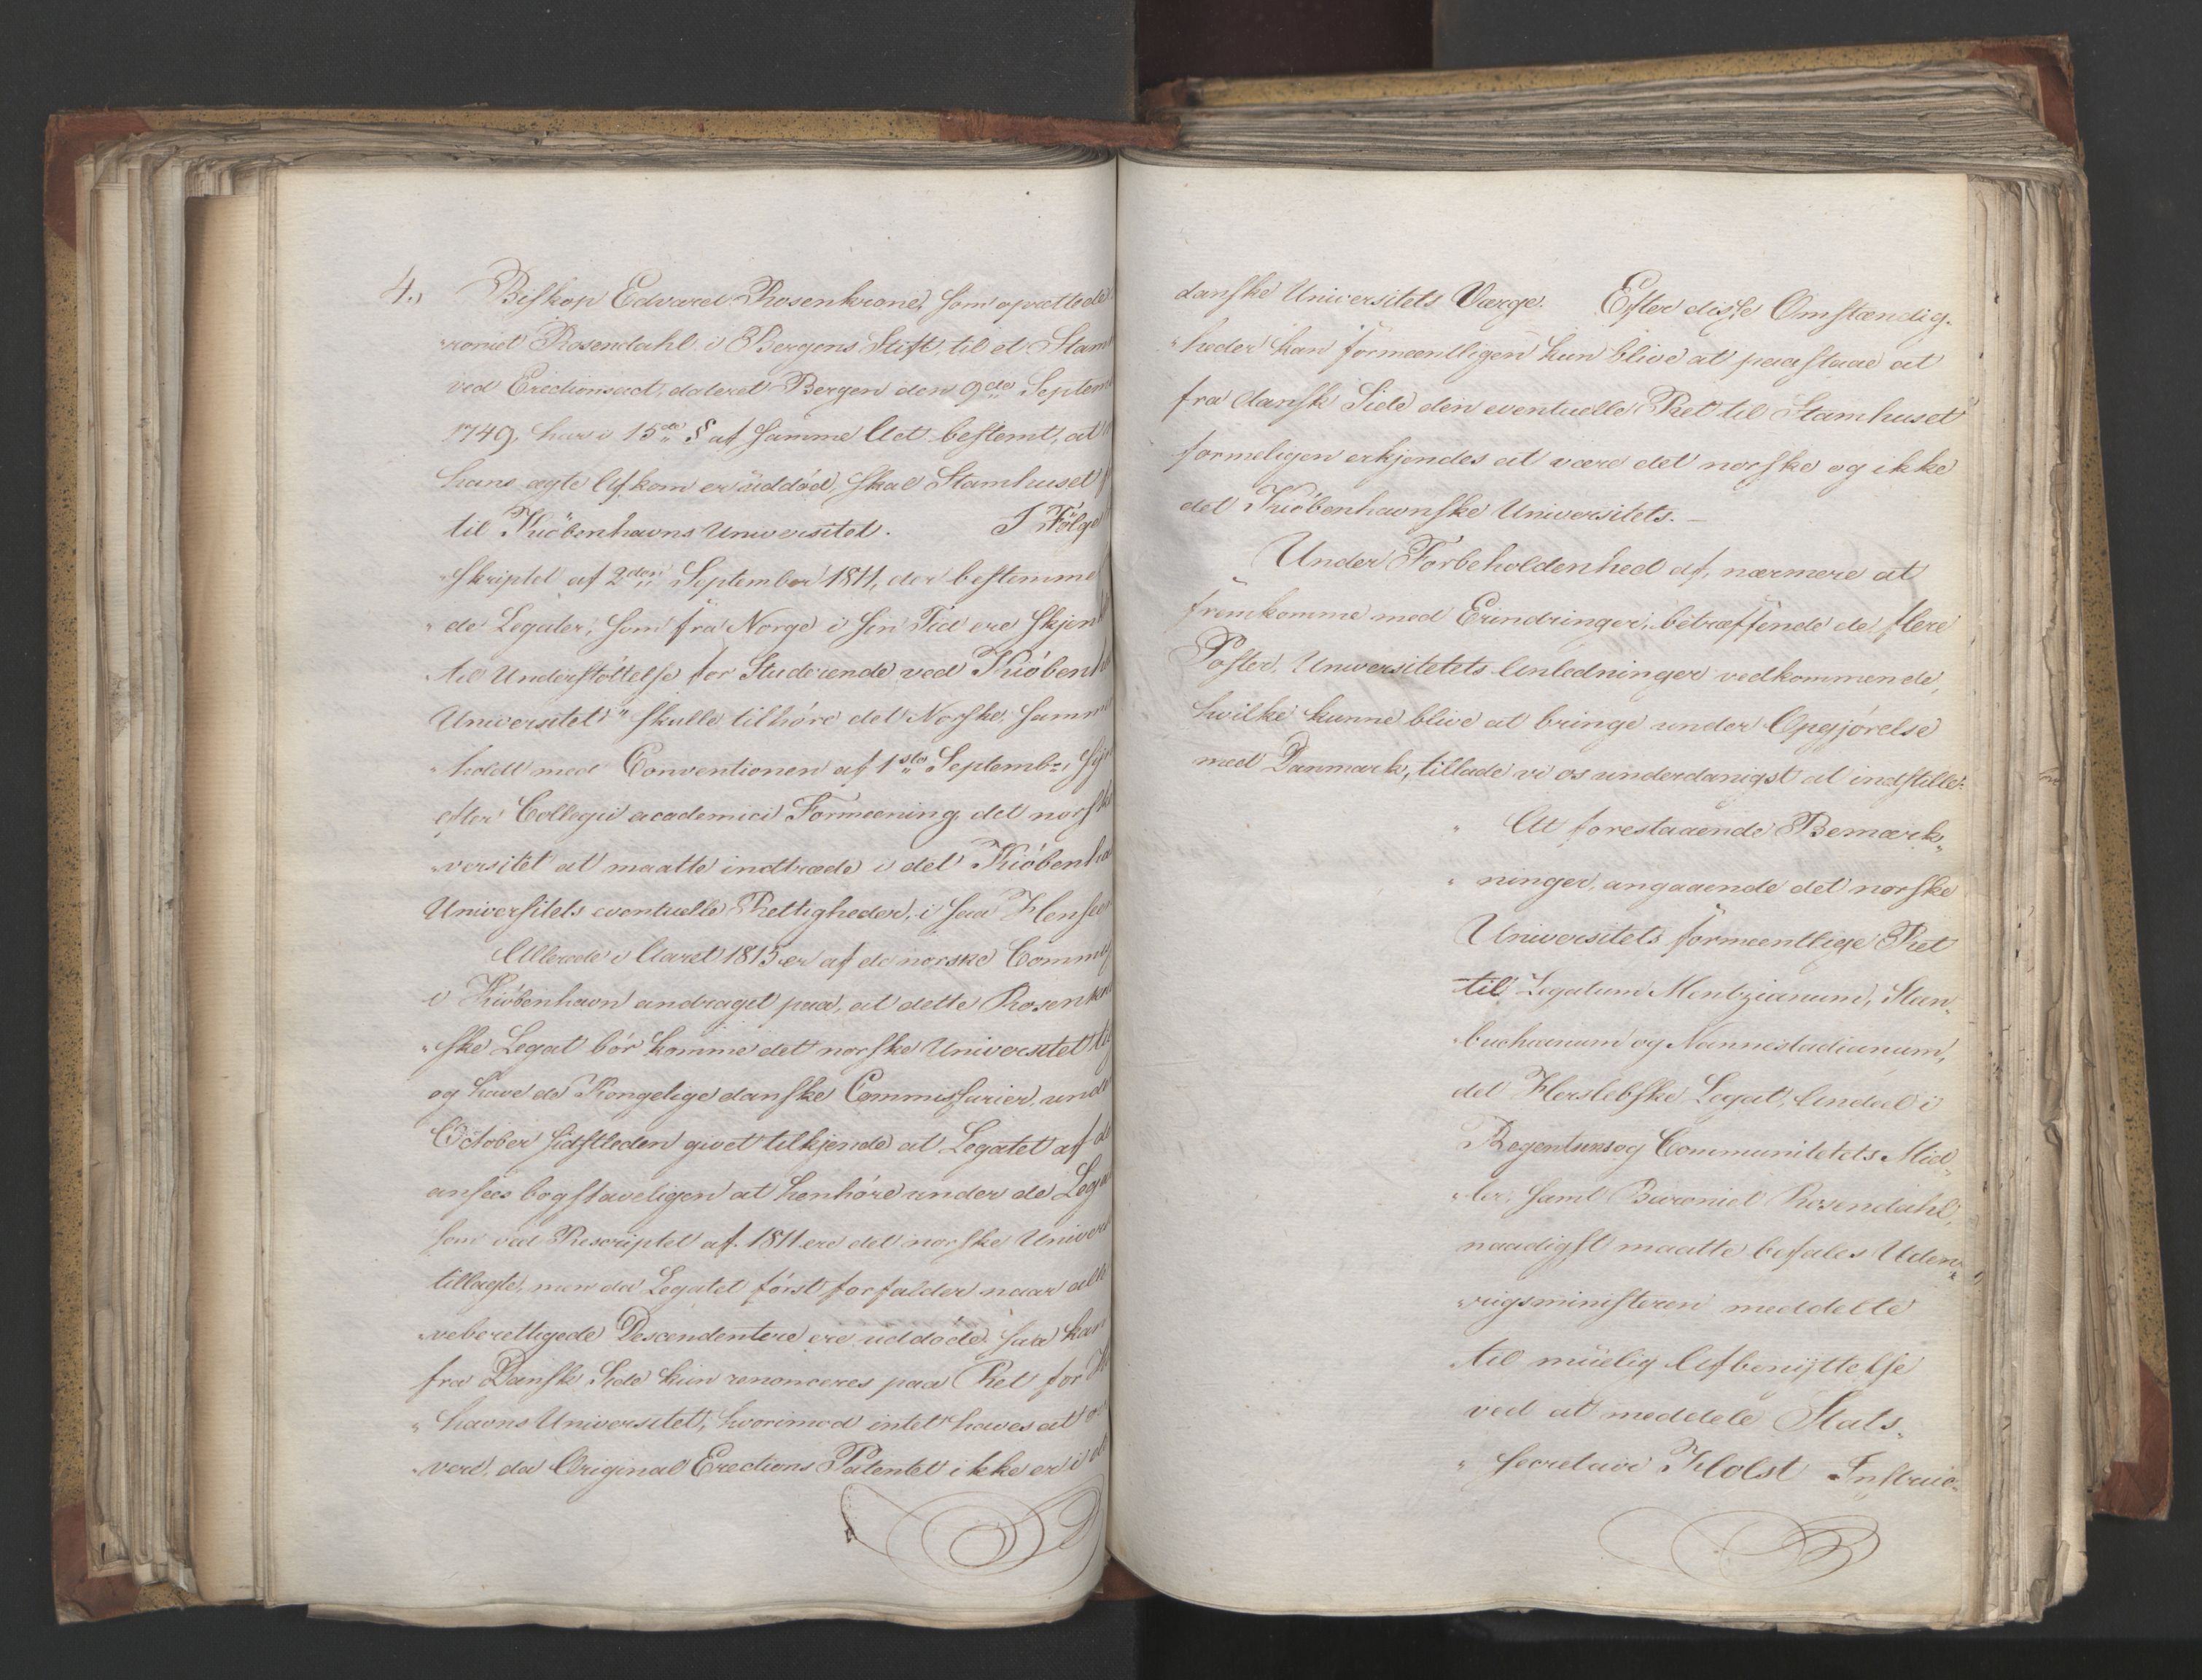 4., Biskop Edvard Rosenkrone, som oprettede
„roniet Rosendahl i Bergens Stift, til et Stam
ved Erectionsact, dateret Bergen den 9de Septem
1749, har i 15de § af samme Act bestemt, at
hans ægte Afkom er uddöd, skal Stamhuset
til Kiöbenhavns Universitet. I Fölge
„skriptet af 2den September 1811, der bestemme
„de Legater, som fra Norge i sin Tid ere skjen
„til Understöttelse for Studerende ved Kiöben
Universitet" skulle tilhöre det Norske, samm
„holdt med Conventionen af 1ste Septembr,
efter Collegii academici Formeening det nors
„versitet at maatte indtræde i det Kiöbenha
Universitets eventuelle Rettigheder, i saa Hensee
Allerede i Aaret 1815 er af de norske Comm
i Kiöbenhavn andraget paa, at dette Rosenkr
„ske Legat bör komme det norske Universitet
og have de Kongelige danske Commissarier, unde
October sidstleden givet tilkjende at Legatet af
ansees bogstaveligen at henhöre under de Lega
som ved Rescriptet af 1811 ere det norske Univer
tillagte, men da Legatet först forfalder naar alle
„veberettigede Descendentere ere uddöde, saa kan
fra Dansk Side kun renonceres paa Ret for
„havns Universitet, hvorimod intet haves at
„vere, da Original Erections Patentet ikke er i
danske Universitets Værge. Efter disse Omstændig„
„heder kan formeentligen kun blive at paastaae at
fra dansk Side den eventuelle Ret til Stamhuset
formeligen erkjendes at være det norske og ikke
det Kiöbenhavnske Universitets. —
Under Forbeholdenhed af, nærmere at
fremkomme med Erindringer, betræffende de flere
Poster, Universitetets Anledninger vedkommende,
hvilke kunne blive at bringe under Opgjörelse
med Danmark, tillade vi os underdanigst at indstille:
„ At forestaaende Bemærk„
„ ninger, angaaende det norske
Universitets formeentlige Ret
til Legatum Mentzianum, Stan„
„buchanum og Nannestadianum,
det Herslebske Legat, Andeel i
Regentsens og Communitetets Mid„
„ler, samt Baroniet Rosendahl,
naadigst maatte befales Uden„
„rigsministeren meddelte
til müelig Afbenÿttelse
ved at meddele Stats„
„ secretair Holst Instruc„